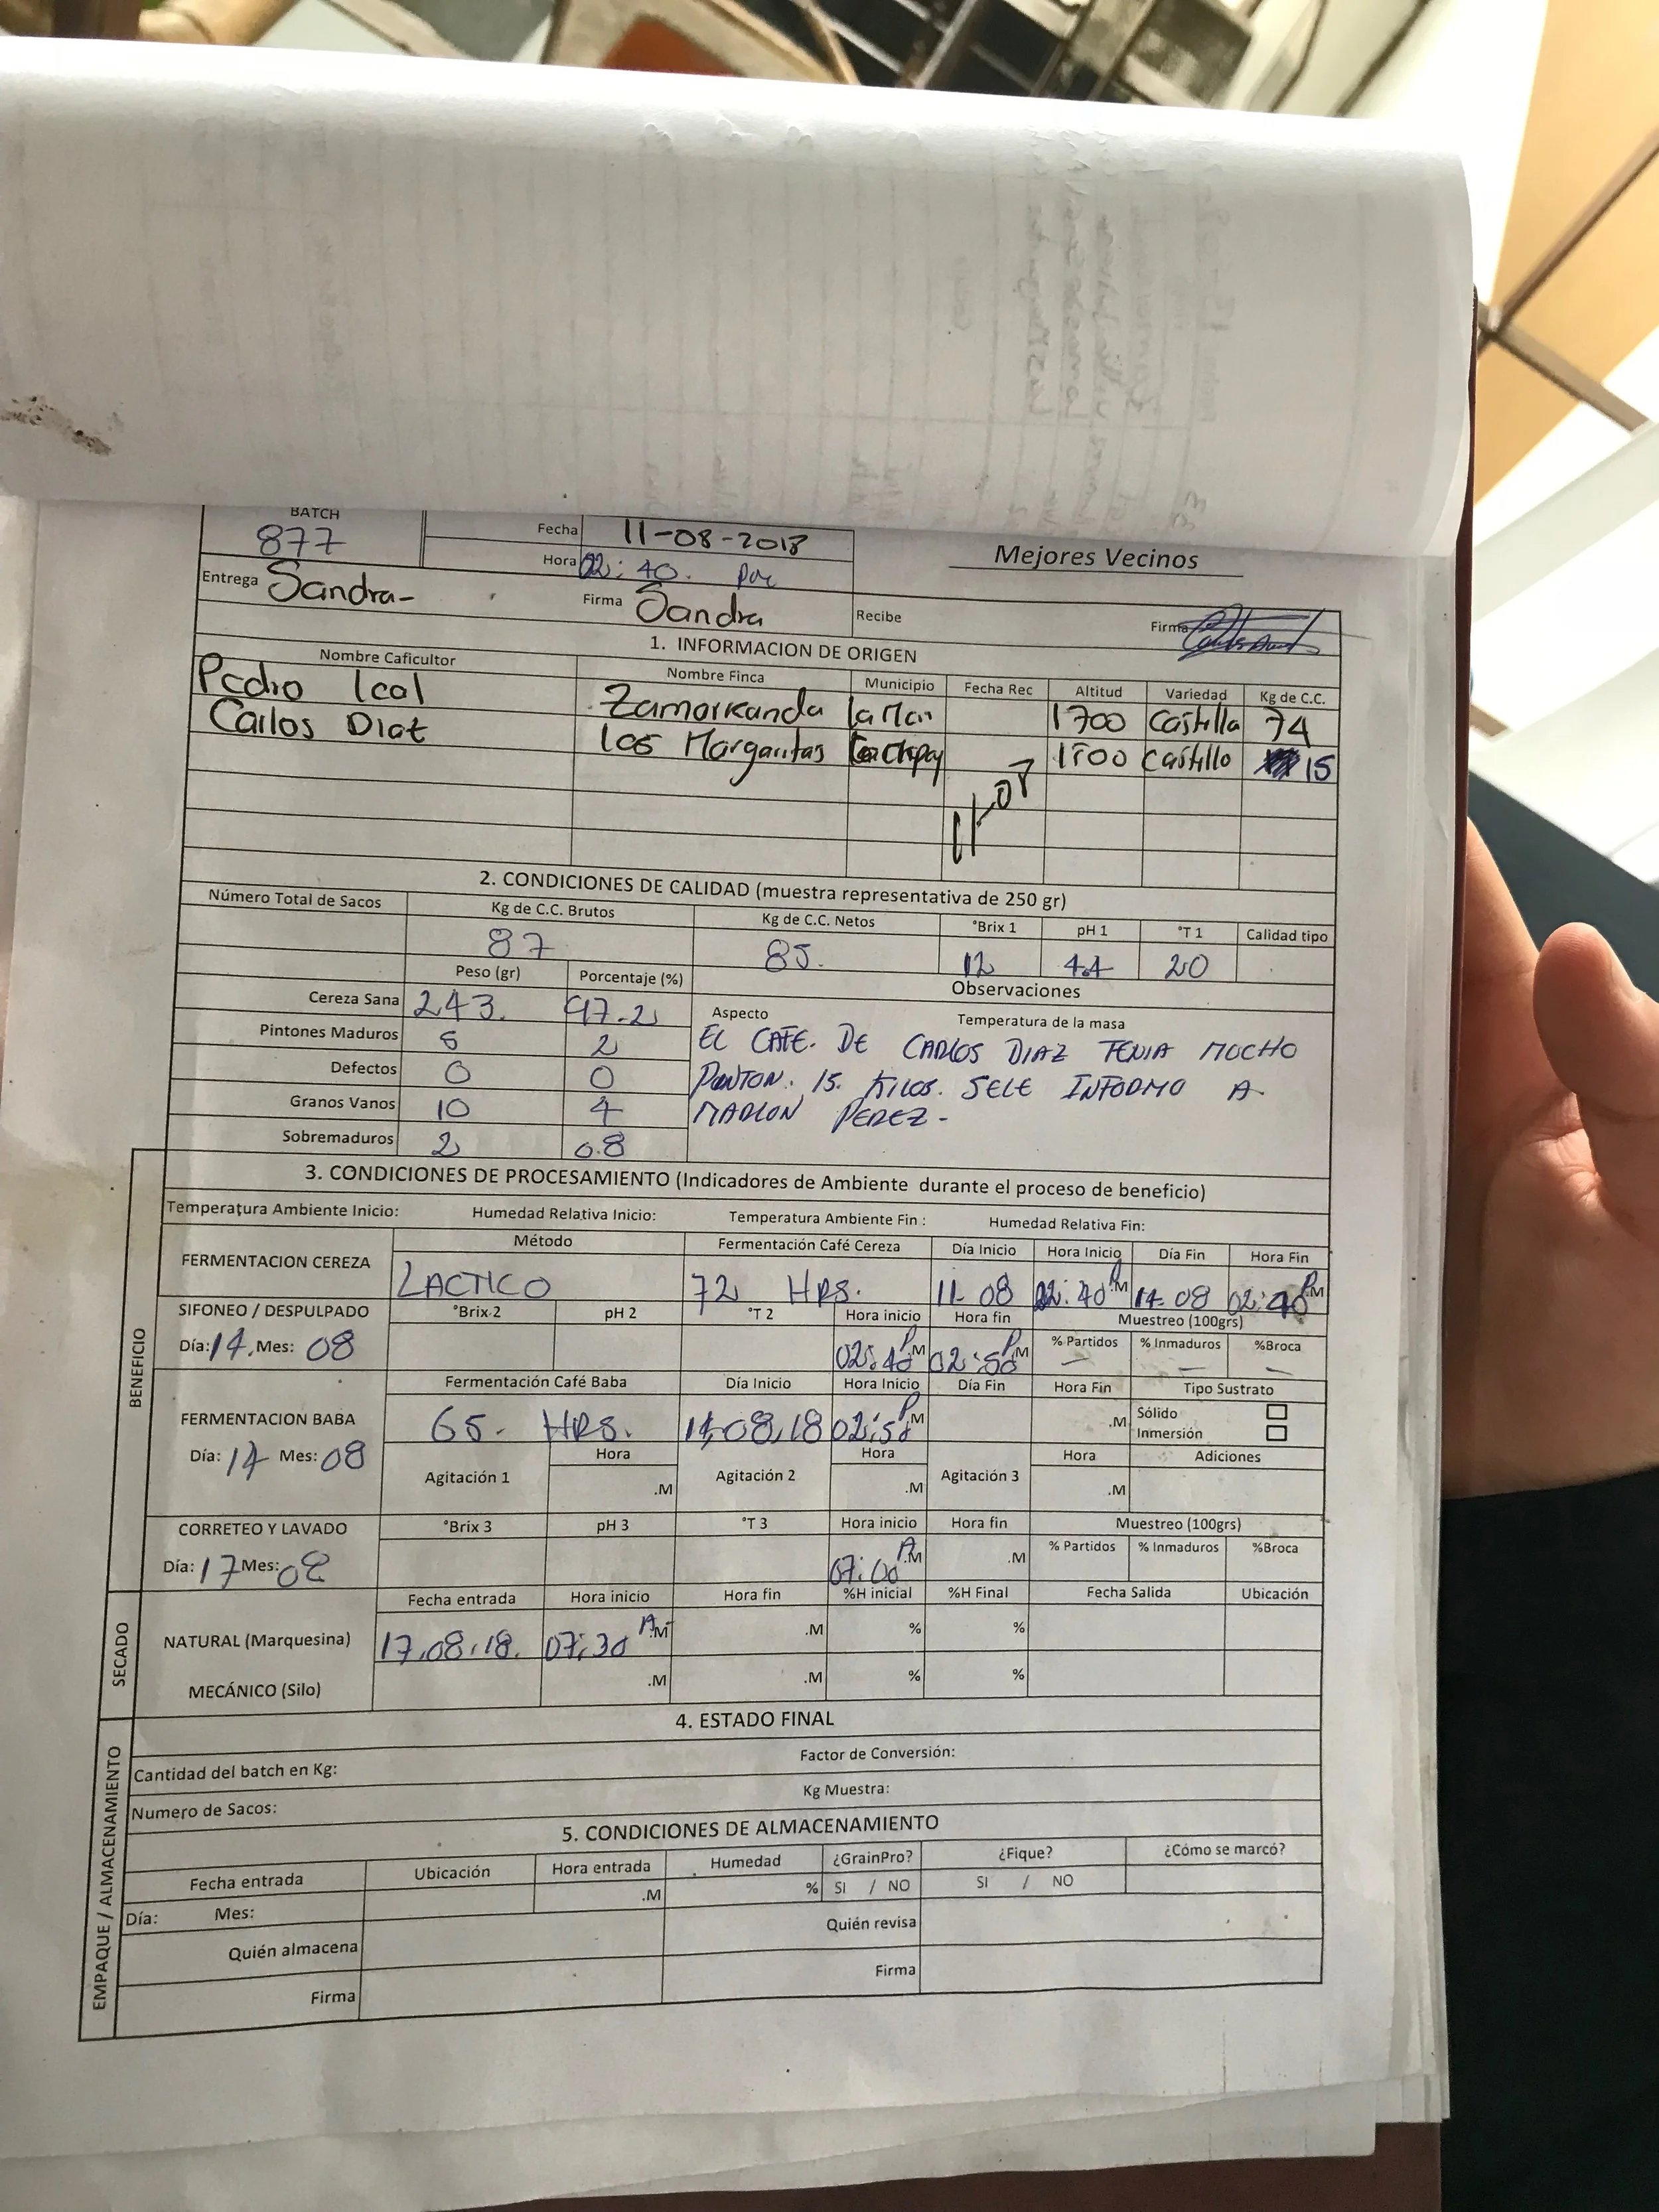 BATCH
877
Fecha 11-08-2018
Hora 02:40. pm
Mejores Vecinos
Entrega Sandra- Firma Sandra Recibe Firma
1. INFORMACION DE ORIGEN
Nombre Caficultor Nombre Finca Municipio Fecha Rec Altitud Variedad Kg de C.C.
Pedro Leal Zamorkanda 1700 Castilla 74
Carlos Diat Los Margaritas 1700 Castillo 15
11-08
2. CONDICIONES DE CALIDAD (muestra representativa de 250 gr)
Número Total de Sacos Kg de C.C. Brutos Kg de C.C. Netos °Brix 1 pH 1 °T 1 Calidad tipo
87 85. 12 4.4 20
Peso (gr) Porcentaje (%) Observaciones
Cereza Sana 243. 97.2 Aspecto Temperatura de la masa
Pintones Maduros 5 2 EL CAFE. DE CARLOS DIAZ TENIA MUCHO
Defectos 0 0 PINTON. 15. KILOS. SELE INFORMO A
Granos Vanos 10 4 MARLON PEREZ-
Sobremaduros 2 0.8
BENEFICIO
3. CONDICIONES DE PROCESAMIENTO (Indicadores de Ambiente durante el proceso de beneficio)
Temperatura Ambiente Inicio: Humedad Relativa Inicio: Temperatura Ambiente Fin : Humedad Relativa Fin:
FERMENTACION CEREZA Método Fermentación Café Cereza Día Inicio Hora Inicio Día Fin Hora Fin
LACTICO 72 HRS. 11-08 02:40 P.M 14-08 02:40 P.M
SIFONEO / DESPULPADO °Brix 2 pH 2 °T 2 Hora inicio Hora fin Muestreo (100grs)
Día: 14. Mes: 08 02:40 P.M 02:50 P.M % Partidos % Inmaduros %Broca
Fermentación Café Baba Día Inicio Hora Inicio Día Fin Hora Fin Tipo Sustrato
FERMENTACION BABA 65. HRS. 14,08,18 02:50 P.M .M Sólido
Inmersión
Día: 14 Mes: 08 Agitación 1 Hora .M Agitación 2 Hora .M Agitación 3 Hora .M Adiciones
CORRETEO Y LAVADO °Brix 3 pH 3 °T 3 Hora inicio Hora fin Muestreo (100grs)
Día: 17 Mes: 08 07:00 A.M .M % Partidos % Inmaduros %Broca
SECADO
Fecha entrada Hora inicio Hora fin %H inicial %H Final Fecha Salida Ubicación
NATURAL (Marquesina) 17.08.18. 07:30 A.M .M % %
MECÁNICO (Silo) .M .M % %
EMPAQUE / ALMACENAMIENTO
4. ESTADO FINAL
Cantidad del batch en Kg: Factor de Conversión:
Numero de Sacos: Kg Muestra:
5. CONDICIONES DE ALMACENAMIENTO
Fecha entrada Ubicación Hora entrada Humedad ¿GrainPro? ¿Fique? ¿Cómo se marcó?
Día: Mes: .M % SI / NO SI / NO
Quién almacena Quién revisa
Firma Firma